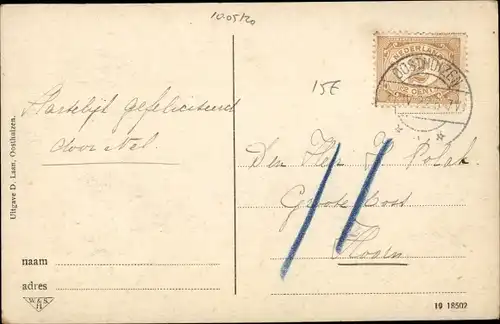 10.05/20
15E
NEDERLAND
OOSTHUIZEN
Hartelijk gefeliciteerd
door Nel.
Den Heer J Polak
Groote oost
Hoorn
Uitgave D. Laan, Oosthuizen.
naam
adres
W & S
H
19 18502